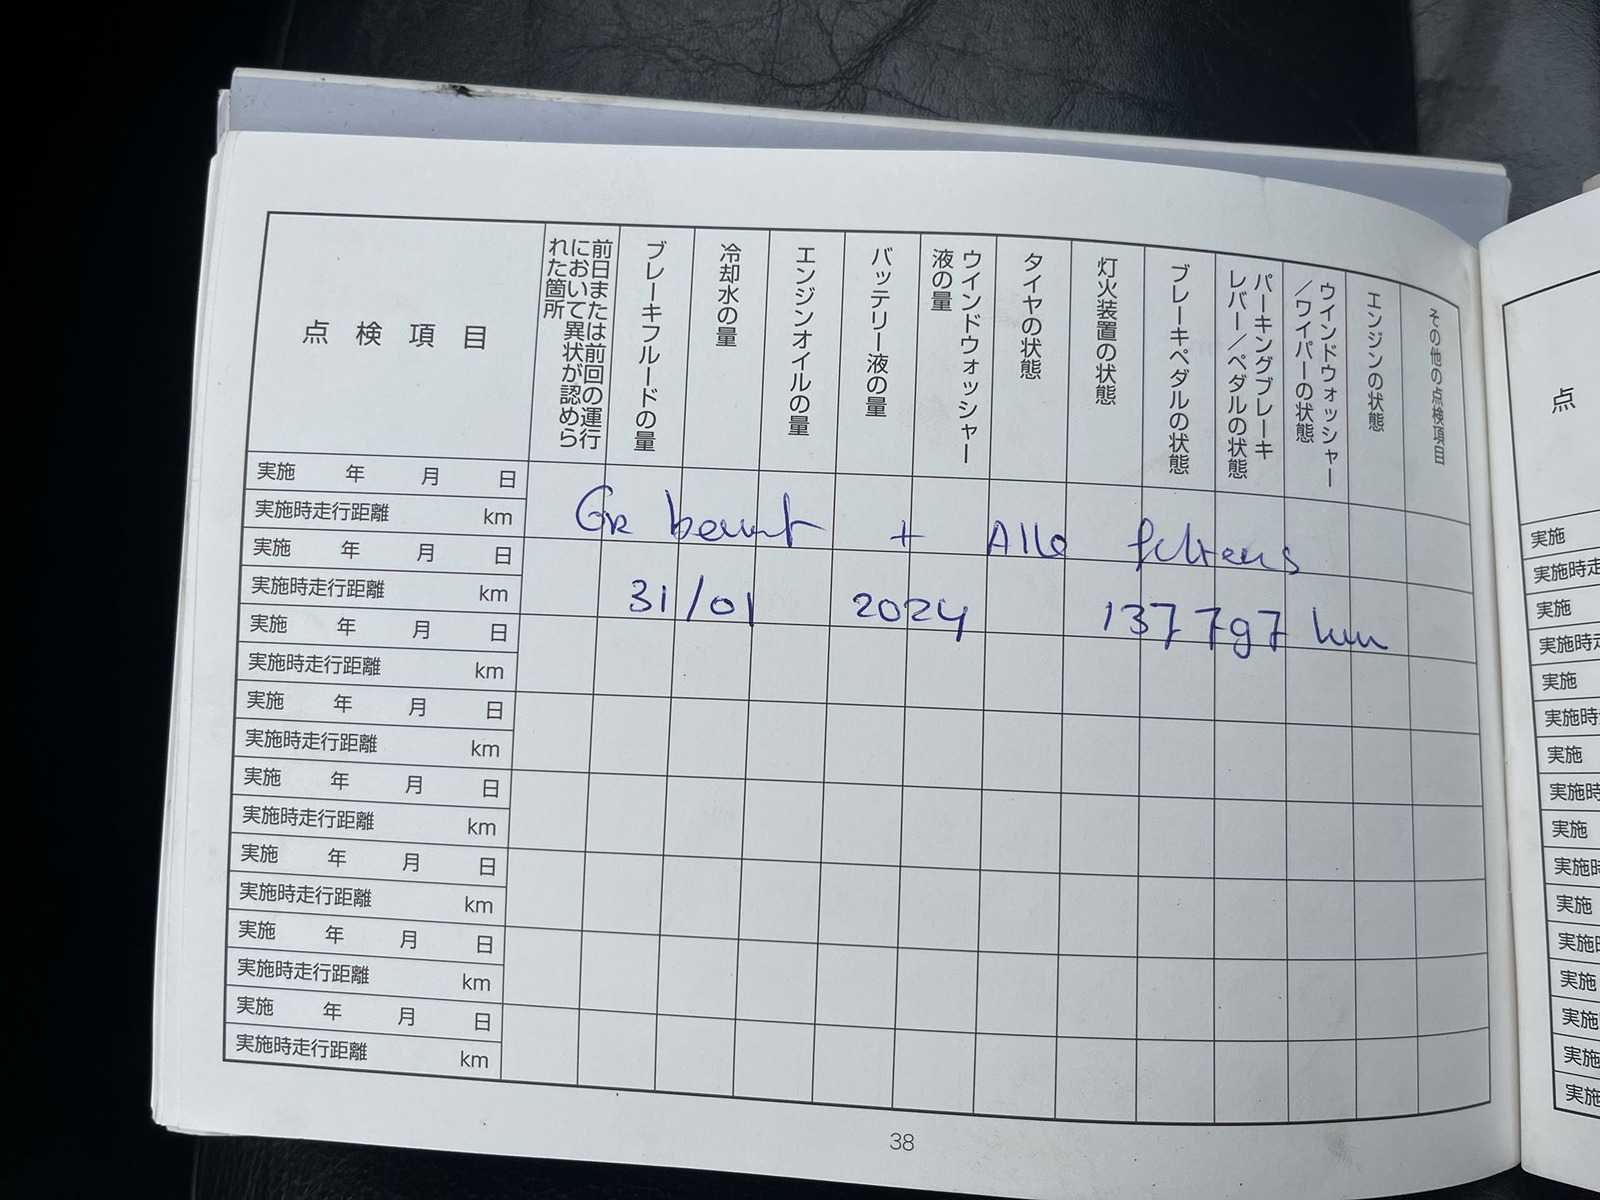 点検項目
前日または前回の運行において異状が認められた箇所
ブレーキフルードの量
冷却水の量
エンジンオイルの量
バッテリー液の量
ウインドウォッシャー液の量
タイヤの状態
灯火装置の状態
ブレーキペダルの状態
パーキングブレーキレバー/ペダルの状態
ウインドウォッシャー/ワイパーの状態
エンジンの状態
その他の点検項目
実施 年 月 日
実施時走行距離 km
Gr beurt + Alle filters
実施 年 月 日
実施時走行距離 km
31/01 2024 137797 km
実施 年 月 日
実施時走行距離 km
実施 年 月 日
実施時走行距離 km
実施 年 月 日
実施時走行距離 km
実施 年 月 日
実施時走行距離 km
実施 年 月 日
実施時走行距離 km
実施 年 月 日
実施時走行距離 km
38
点
実施
実施時走
実施
実施時走
実施
実施時
実施
実施時
実施
実施時
実施
実施時
実施
実施時
実施
実施